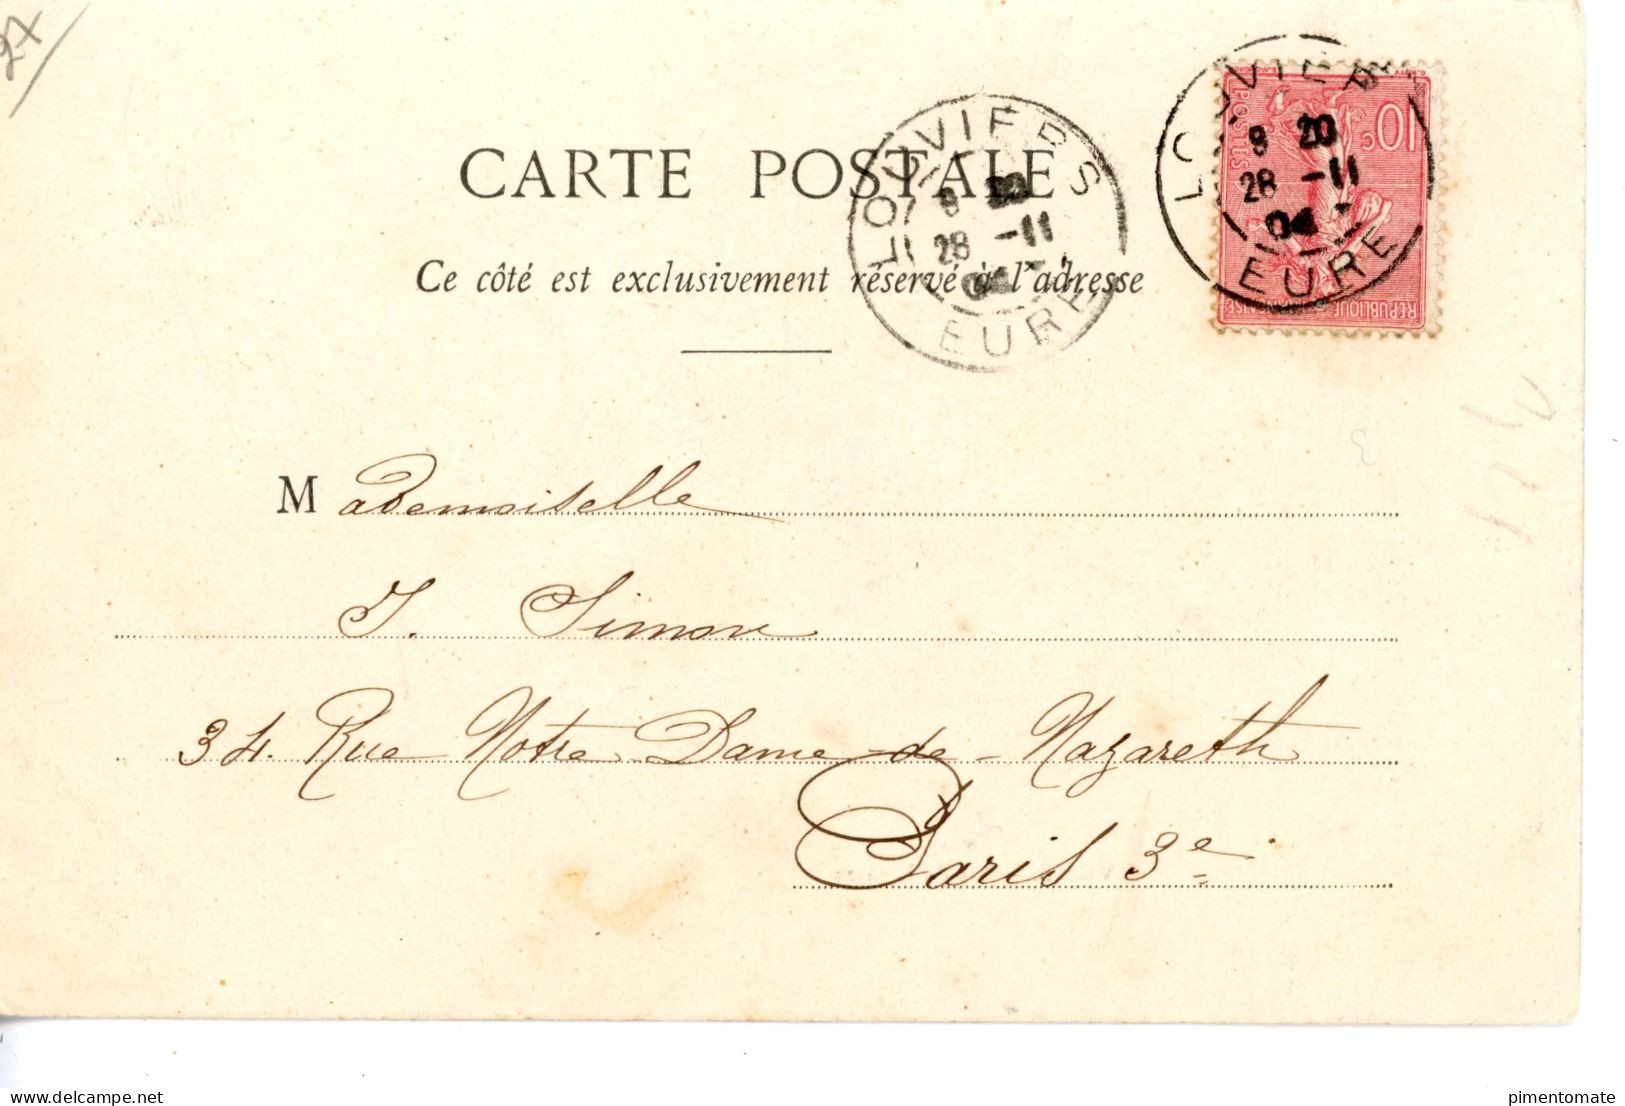 27
CARTE POSTALE
Ce côté est exclusivement réservé à l'adresse
LOUVIERS
28 -11
EURE
LOUVIERS
8 20
28 -11
04
EURE
10c
POSTES
RÉPUBLIQUE FRANÇAISE
Mademoiselle
J. Simon
34. Rue Notre Dame-de-Nazareth
Paris 3e
www.delcampe.net
pimentomate